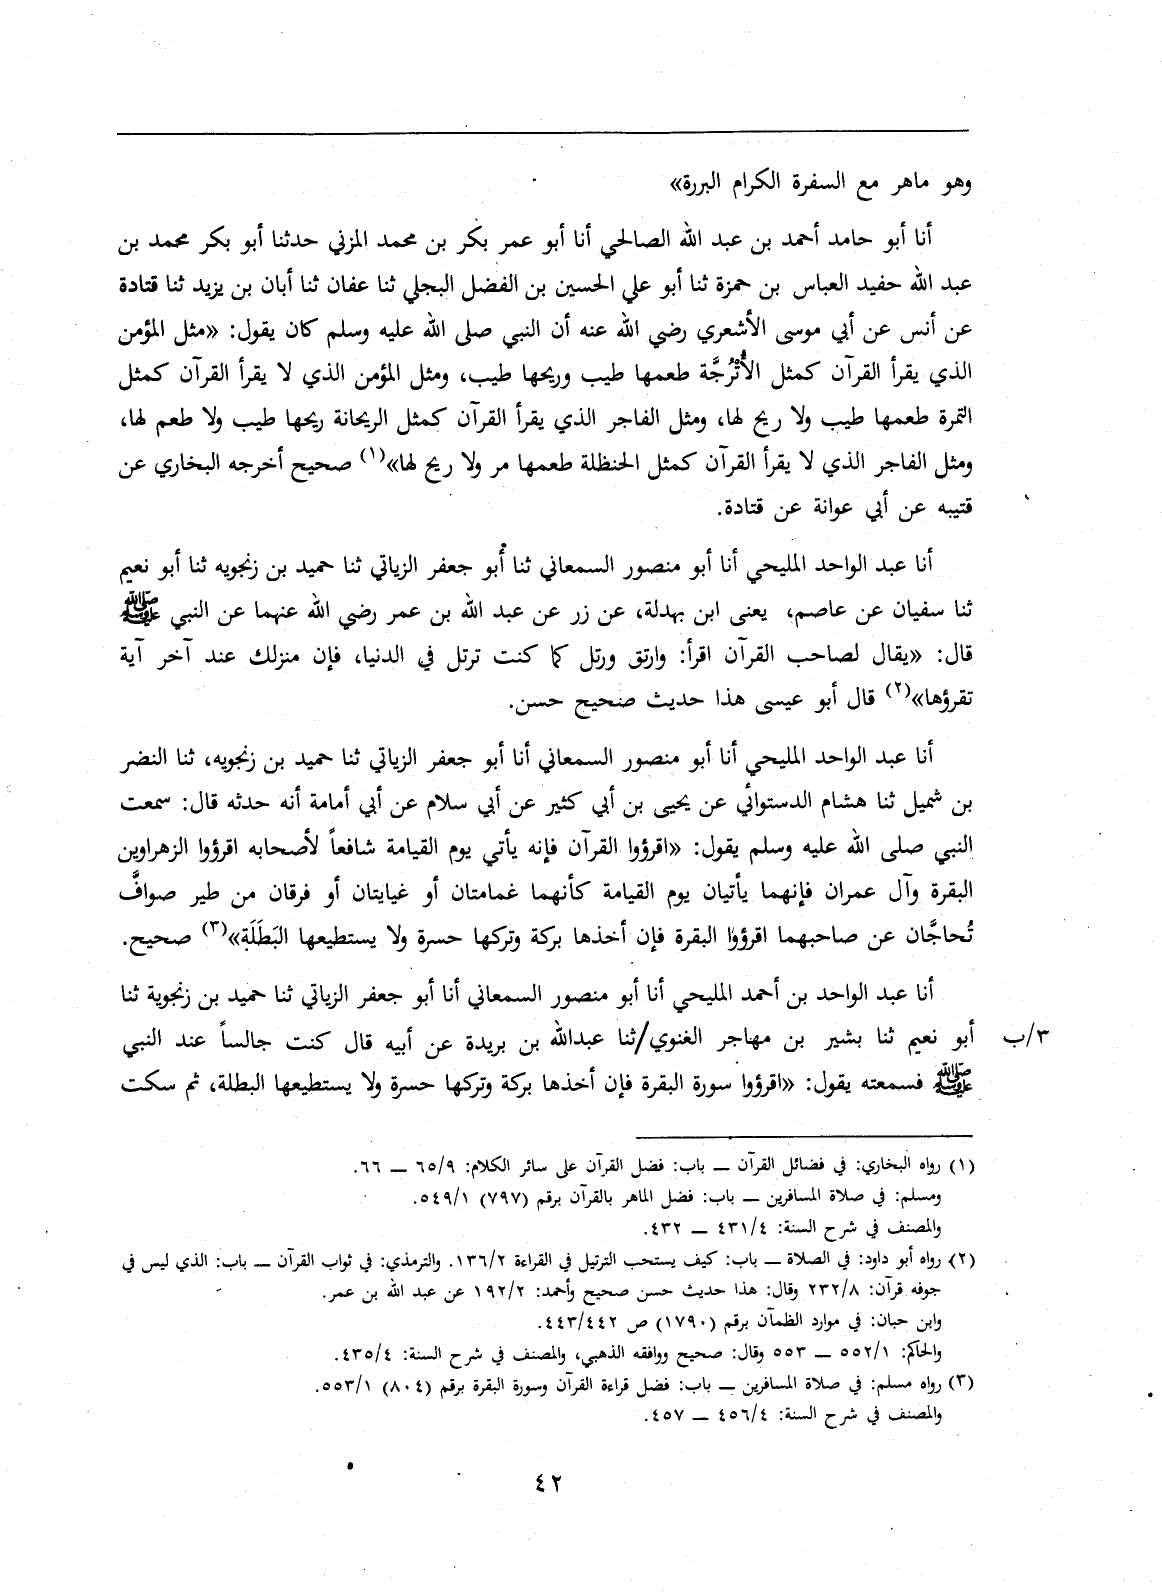 وهو ماهر مع السفرة الكرام البررة»
أنا أبو حامد أحمد بن عبد الله الصالحي أنا أبو عمر بكر بن محمد المزني حدثنا أبو بكر محمد بن
عبد الله حفيد العباس بن حمزة ثنا أبو علي الحسين بن الفضل البجلي ثنا عفان ثنا أبان بن يزيد ثنا قتادة
عن أنس عن أبي موسى الأشعري رضي الله عنه أن النبي صلى الله عليه وسلم كان يقول: «مثل المؤمن
الذي يقرأ القرآن كمثل الأُتْرُجَّة طعمها طيب وريحها طيب، ومثل المؤمن الذي لا يقرأ القرآن كمثل
التمرة طعمها طيب ولا ريح لها، ومثل الفاجر الذي يقرأ القرآن كمثل الريحانة ريحها طيب ولا طعم لها،
ومثل الفاجر الذي لا يقرأ القرآن كمثل الحنظلة طعمها مر ولا ريح لها»(١) صحيح أخرجه البخاري عن
قتيبه عن أبي عوانة عن قتادة.
أنا عبد الواحد المليحي أنا أبو منصور السمعاني ثنا أبو جعفر الزياتي ثنا حميد بن زنجويه ثنا أبو نعيم
ثنا سفيان عن عاصم، يعنى ابن بهدلة، عن زر عن عبد الله بن عمر رضي الله عنهما عن النبي ﷺ
قال: «يقال لصاحب القرآن اقرأ: وارتق ورتل كما كنت ترتل في الدنيا، فإن منزلك عند آخر آية
تقرؤها»(٢) قال أبو عيسى هذا حديث صحيح حسن.
أنا عبد الواحد المليحي أنا أبو منصور السمعاني أنا أبو جعفر الزياتي ثنا حميد بن زنجويه، ثنا النضر
بن شميل ثنا هشام الدستوائي عن يحيى بن أبي كثير عن أبي سلام عن أبي أمامة أنه حدثه قال: سمعت
النبي صلى الله عليه وسلم يقول: «اقرؤوا القرآن فإنه يأتي يوم القيامة شافعاً لأصحابه اقرؤوا الزهراوين
البقرة وآل عمران فإنهما يأتيان يوم القيامة كأنهما غمامتان أو غيايتان أو فرقان من طير صوافَّ
تُحاجَّان عن صاحبهما اقرؤوا البقرة فإن أخذها بركة وتركها حسرة ولا يستطيعها البَطَلَةِ»(٣) صحيح.
أنا عبد الواحد بن أحمد المليحي أنا أبو منصور السمعاني أنا أبو جعفر الزياتي ثنا حميد بن زنجوية ثنا
٣/ب أبو نعيم ثنا بشير بن مهاجر الغنوي/ثنا عبدالله بن بريدة عن أبيه قال كنت جالساً عند النبي
ﷺ فسمعته يقول: «اقرؤوا سورة البقرة فإن أخذها بركة وتركها حسرة ولا يستطيعها البطلة، ثم سكت
(١) رواه البخاري: في فضائل القرآن ــ باب: فضل القرآن على سائر الكلام: ٦٥/٩ ــ ٦٦.
ومسلم: في صلاة المسافرين ــ باب: فضل الماهر بالقرآن برقم (٧٩٧) ٥٤٩/١.
والمصنف في شرح السنة: ٤٣١/٤ ــ ٤٣٢.
(٢) رواه أبو داود: في الصلاة ــ باب: كيف يستحب الترتيل في القراءة ١٣٦/٢. والترمذي: في ثواب القرآن ــ باب: الذي ليس في
جوفه قرآن: ٢٣٢/٨ وقال: هذا حديث حسن صحيح وأحمد: ١٩٢/٢ عن عبد الله بن عمر.
وابن حبان: في موارد الظمآن برقم (١٧٩٠) ص ٤٤٣/٤٤٢.
والحاكم: ٥٥٢/١ ــ ٥٥٣ وقال: صحيح ووافقه الذهبي، والمصنف في شرح السنة: ٤٣٥/٤.
(٣) رواه مسلم: في صلاة المسافرين ــ باب: فضل قراءة القرآن وسورة البقرة برقم (٨٠٤) ٥٥٣/١.
والمصنف في شرح السنة: ٤٥٦/٤ ــ ٤٥٧.
٤٢